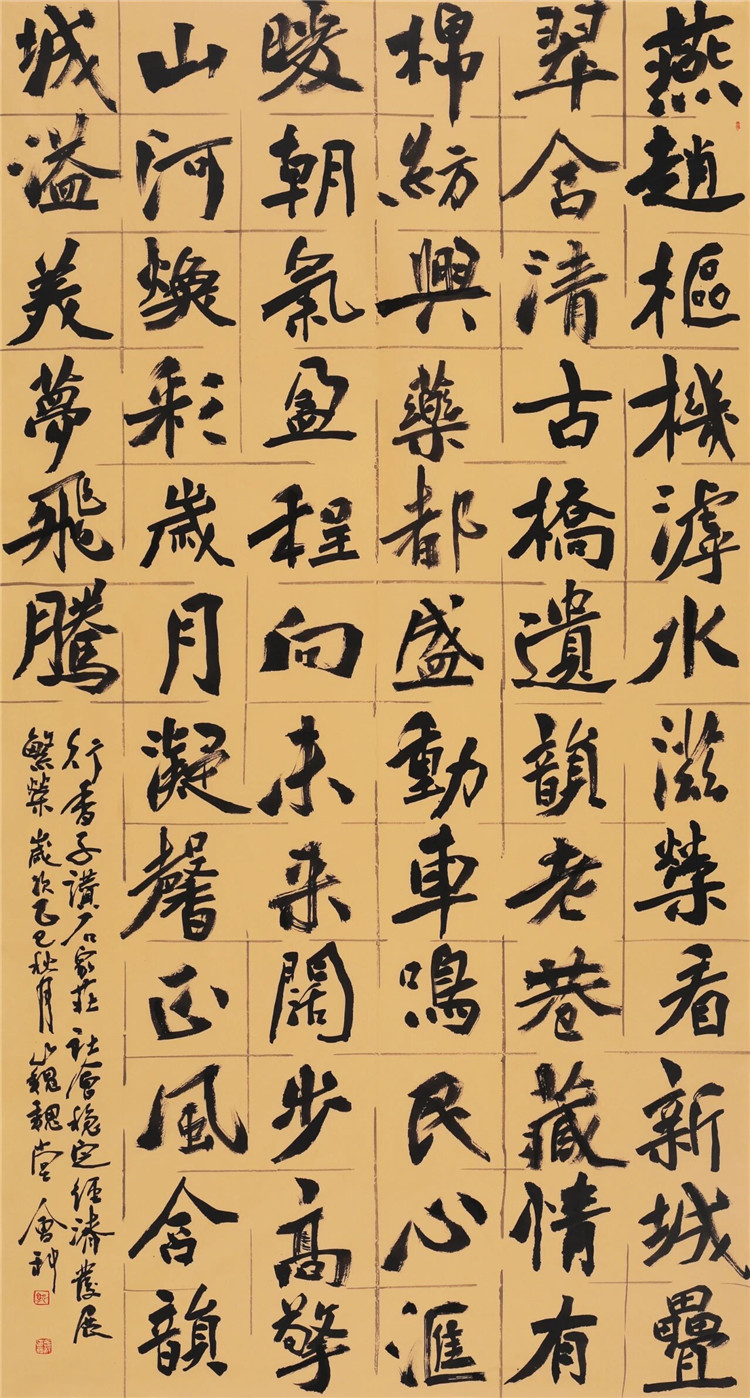 燕趙樞機滹水滋榮看新城疊
翠含清古橋遺韻老巷藏情有
棉紡興藥都盛動車鳴民心滙
暖朝氣盈程向未来闊步高擎
山河焕彩歲月凝馨正風含韻
城溢美夢飛騰
行香子讚石家莊社會穩定經濟發展
繁榮歲次乙巳秋月巍巍堂會科